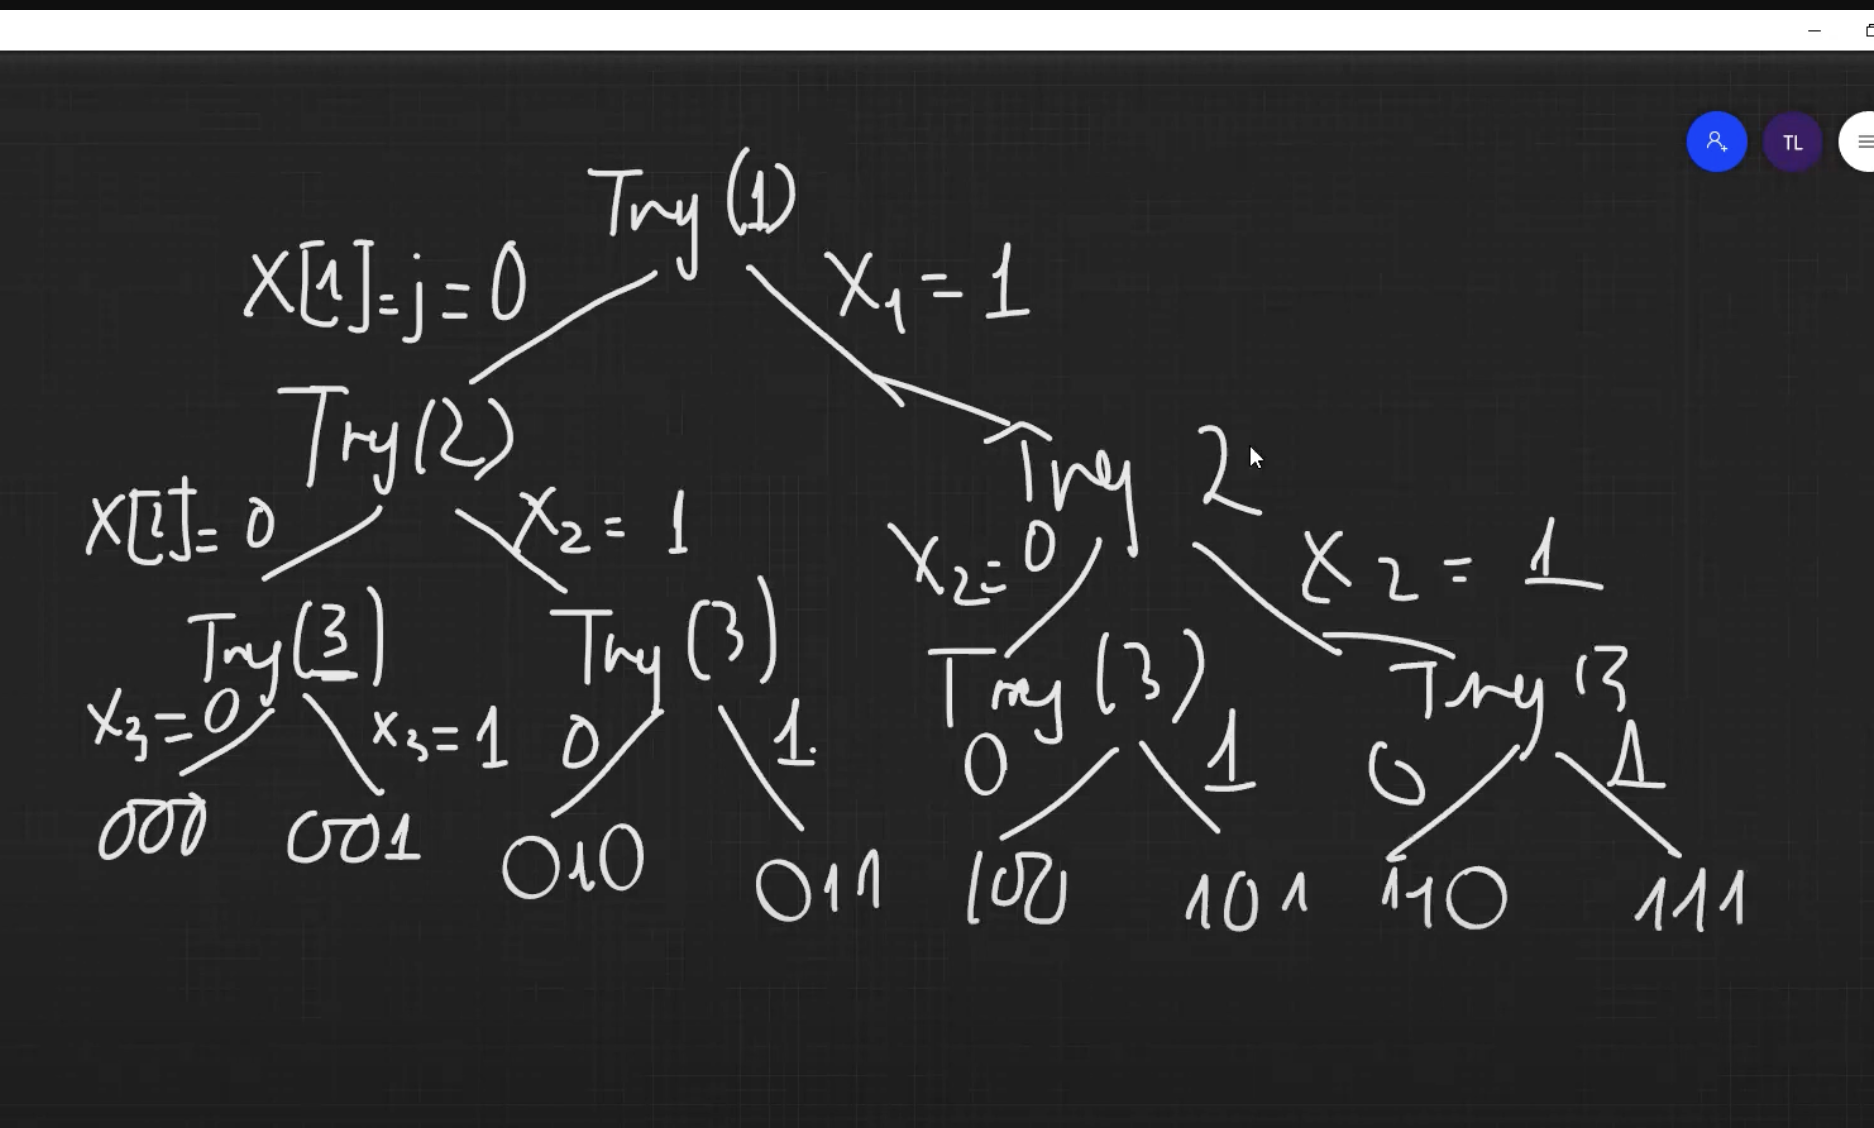 TL
Try (1)
X[1]=j=0
X1 = 1
Try(2)
Try 2
X[2]= 0
X2 = 1
X2=0
X2 = 1
Try(3)
Try (3)
Try (3)
Try (3
X3=0
X3=1
0
1.
0
1
0
1
000
001
010
011
100
101
110
111